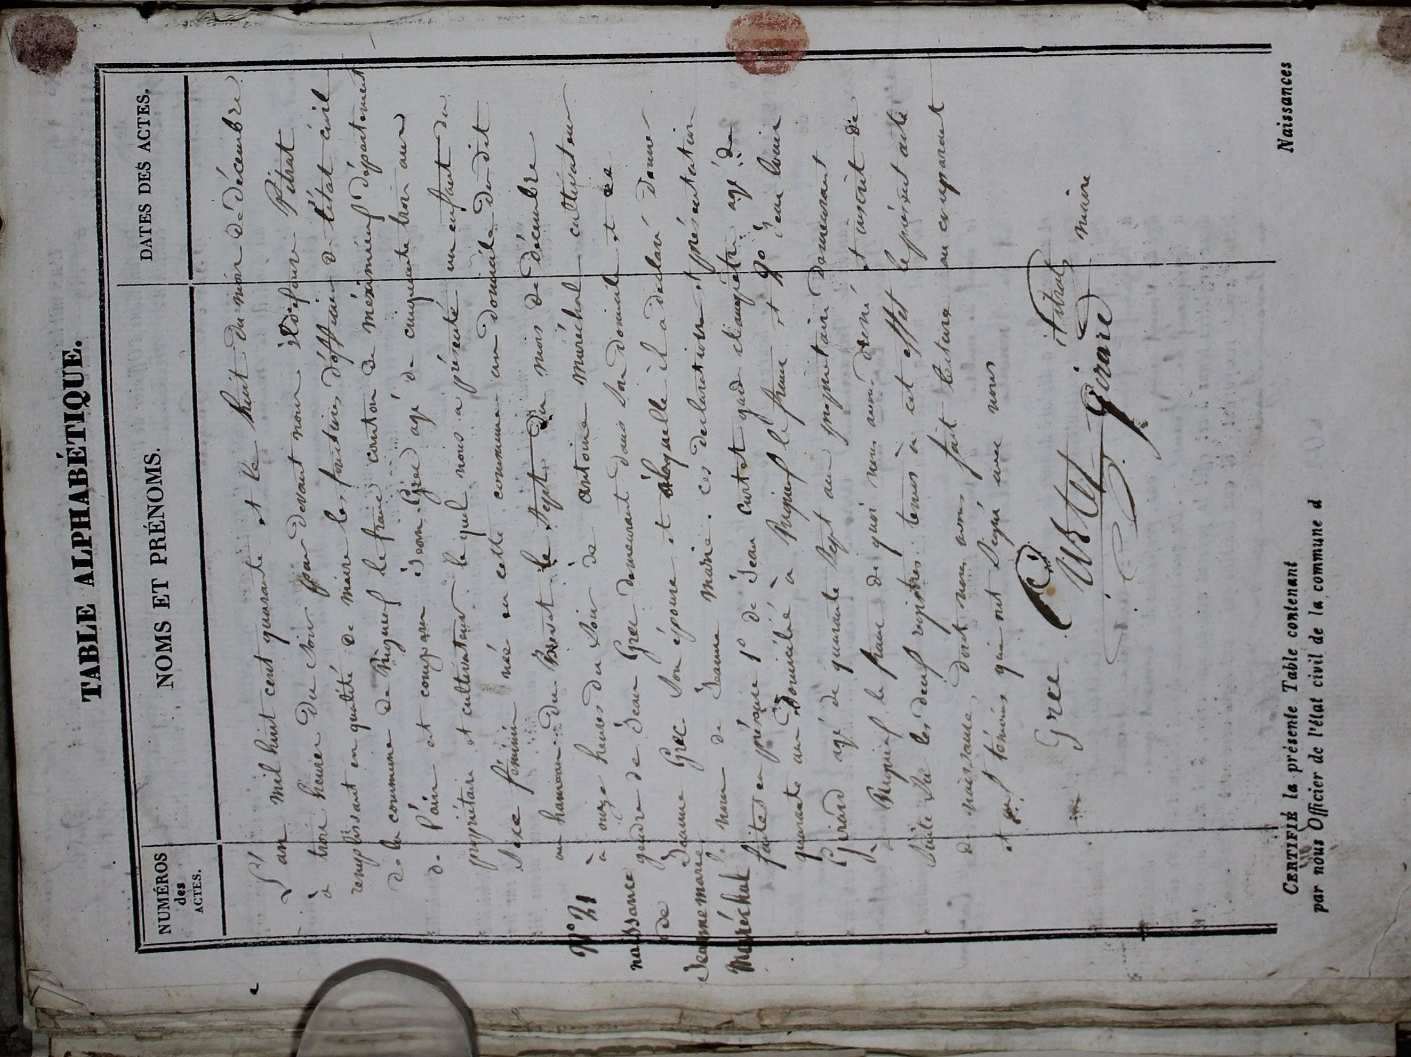 TABLE ALPHABÉTIQUE.
NUMÉROS des ACTES.
NOMS ET PRÉNOMS.
DATES DES ACTES.
L'an mil huit cent quarante et le huit du mois de décembre
à trois heures du soir par devant nous Pitrat
remplissant en qualité de maire les fonctions d'officier de l'état civil
de la commune de Rignieux le franc canton de méximieux département
de l'ain est comparu Jean Grec agé de cinquante trois ans
propriétaire et cultivateur le quel nous a présenté un enfant du
sexe féminin née en cette commune au domicile du dit
au hameau du le sept du mois de décembre
à onze heures du soir de antoine maréchal cultivateur
gendre de Jean Grec demeurant dans son domicile et de
Jeanne Grec son épouse et à laquelle il a déclaré donner
le nom de Jeanne marie. ces declarations et présentation
faites en présence 1° de Jean curtet gard champètre agé de
quarante ans domicilié à Rignieux le franc et 2° Jean louis
Girard agé de quarante sept ans propriétaire demeurant
à Rignieux le franc de quoi nous avons donné et inscrit de
suite sur les deux registres tenus à cet effet le présent acte
de naissance, dont nous avons fait lecture au comparant
et aux témoins qui ont signé avec nous
N° 21
naissance
de
Jeanne marie
Maréchal
Grec
Curtet
Girard
Pitrat maire
CERTIFIÉ la présente Table contenant
par nous Officier de l'état civil de la commune d
Naissances